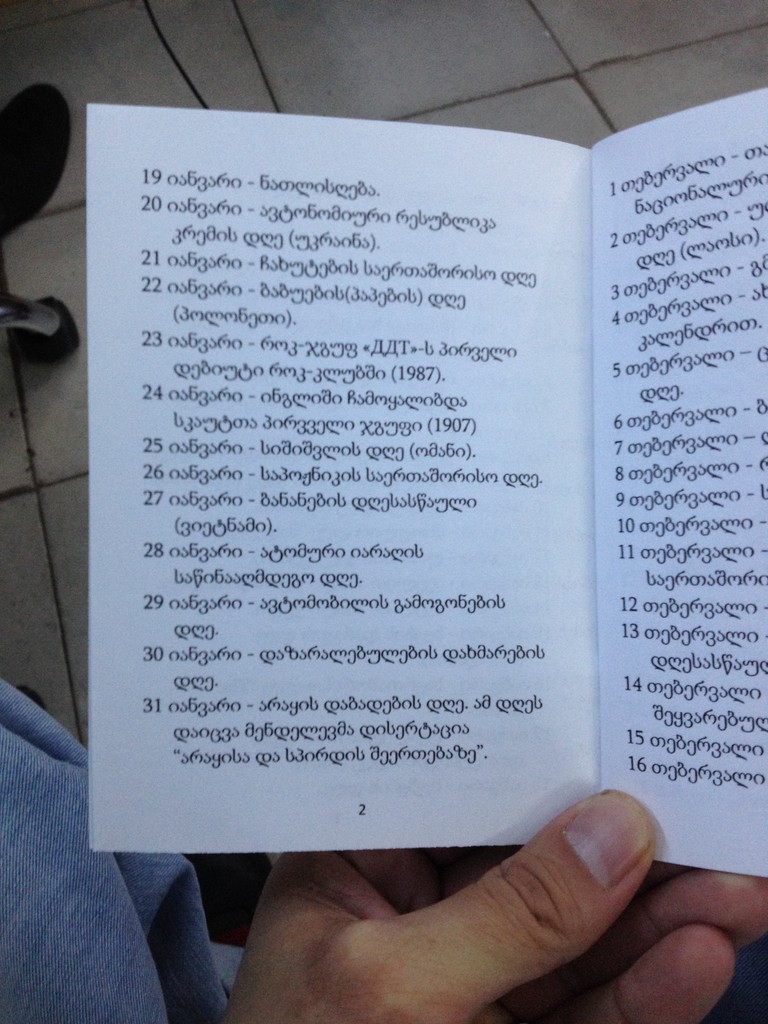 19 იანვარი - ნათლისღება.
20 იანვარი - ავტონომიური რესუბლიკა
კრემის დღე (უკრაინა).
21 იანვარი - ჩახუტების საერთაშორისო დღე
22 იანვარი - ბაბუების(პაპების) დღე
(პოლონეთი).
23 იანვარი - როკ-ჯგუფ «ДДТ»-ს პირველი
დებიუტი როკ-კლუბში (1987).
24 იანვარი - ინგლიში ჩამოყალიბდა
სკაუტთა პირვველი ჯგუფი (1907)
25 იანვარი - სიშიშვლის დღე (ომანი).
26 იანვარი - საპოჟნიკის საერთაშორისო დღე.
27 იანვარი - ბანანების დღესასწაული
(ვიეტნამი).
28 იანვარი - ატომური იარაღის
საწინააღმდეგო დღე.
29 იანვარი - ავტომობილის გამოგონების
დღე.
30 იანვარი - დაზარალებულების დახმარების
დღე.
31 იანვარი - არაყის დაბადების დღე. ამ დღეს
დაიცვა მენდელევმა დისერტაცია
“არაყისა და სპირდის შეერთებაზე”.
2
1 თებერვალი -
ნაციონალური
2 თებერვალი -
დღე (ლაოსი).
3 თებერვალი -
4 თებერვალი -
კალენდრით.
5 თებერვალი –
დღე.
6 თებერვალი -
7 თებერვალი –
8 თებერვალი -
9 თებერვალი -
10 თებერვალი -
11 თებერვალი -
საერთაშორი
12 თებერვალი -
13 თებერვალი -
დღესასწაულ
14 თებერვალი
შეყვარებულ
15 თებერვალი
16 თებერვალი